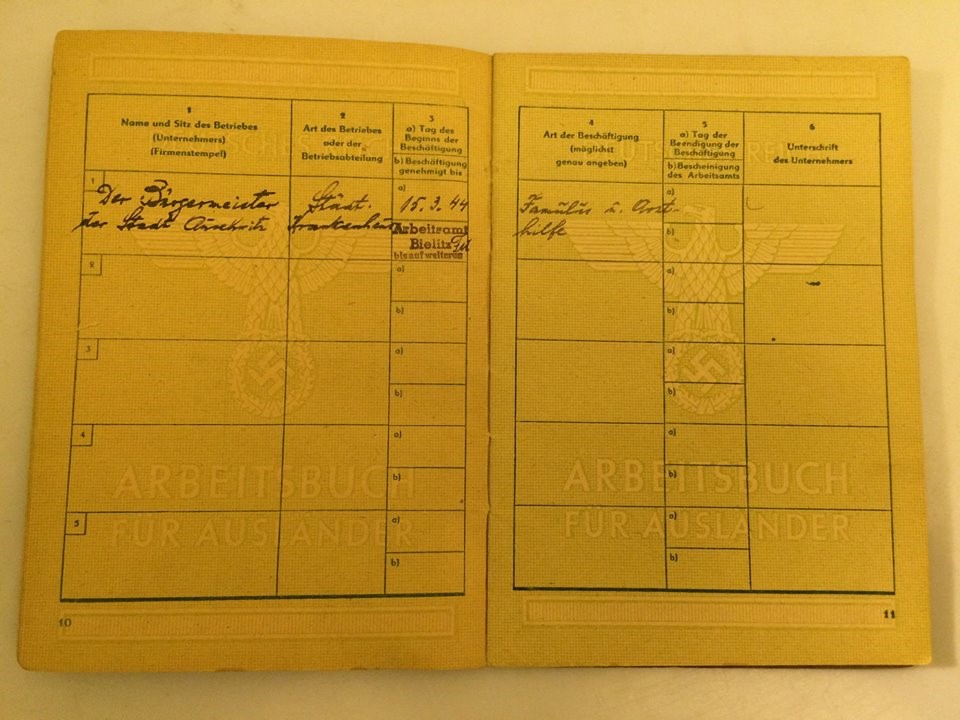 1
Name und Sitz des Betriebes
(Unternehmers)
(Firmenstempel)
2
Art des Betriebes
oder der
Betriebsabteilung
3
a) Tag des
Beginns der
Beschäftigung
b) Beschäftigung
genehmigt bis
1
Der Bürgermeister
der Stadt Auschwitz
Städt.
Krankenhaus
a)
15.3.44
Arbeitsamt
Bielitz
bis auf weiteres
2
a)
b)
3
a)
b)
4
a)
b)
5
a)
b)
ARBEITSBUCH
FÜR AUSLÄNDER
10
4
Art der Beschäftigung
(möglichst
genau angeben)
5
a) Tag der
Beendigung der
Beschäftigung
b) Bescheinigung
des Arbeitsamts
6
Unterschrift
des Unternehmers
Famulus u. Arzt-
hilfe
a)
b)
a)
b)
a)
b)
a)
b)
a)
b)
ARBEITSBUCH
FÜR AUSLÄNDER
11